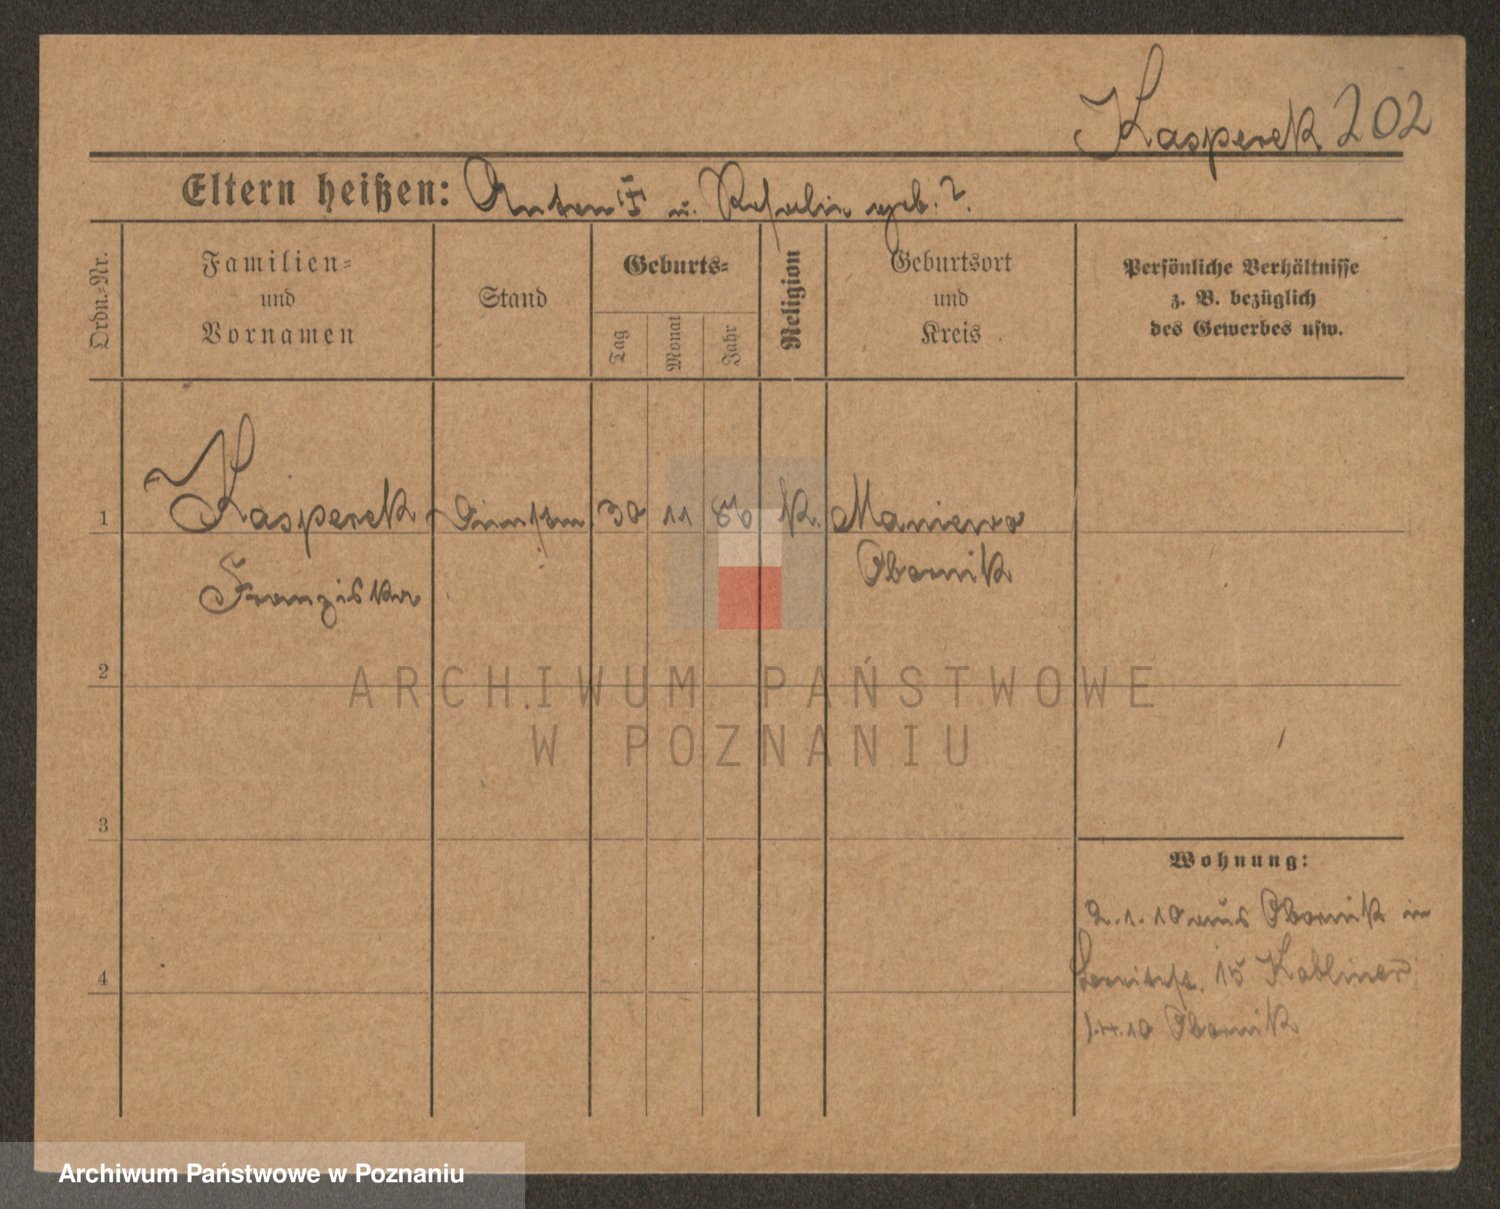 Kasperek 202
Eltern heißen: Anton † u. Rosalie geb. ?
Ordn.-Nr.
Familien-
und
Vornamen
Stand
Geburts-
Tag
Monat
Jahr
Religion
Geburtsort
und
Kreis
Persönliche Verhältnisse
z. B. bezüglich
des Gewerbes usw.
1 Kasperek 30 11 86 K. Maniewo
Franziska Obornik
2
ARCHIWUM PAŃSTWOWE
W POZNANIU
3
Wohnung:
2.1.10 aus Obornik in
15
4
10 Obornik
Archiwum Państwowe w Poznaniu